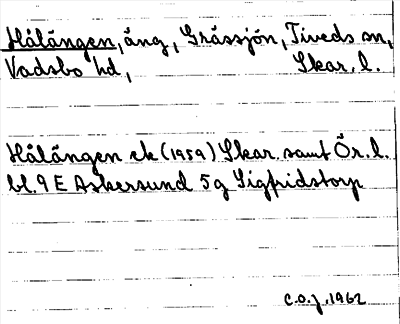 Hålängen, äng, Gråssjön, Tiveds sn,
Vadsbo hd, Skar. l.
Hålängen ek (1959) Skar. samt Ör. l.
bl. 9 E Askersund 5g Sigfridstorp
C.O.J. 1962